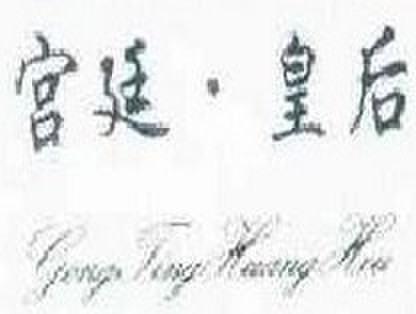 宫廷·皇后
Gong Ting Huang Hou